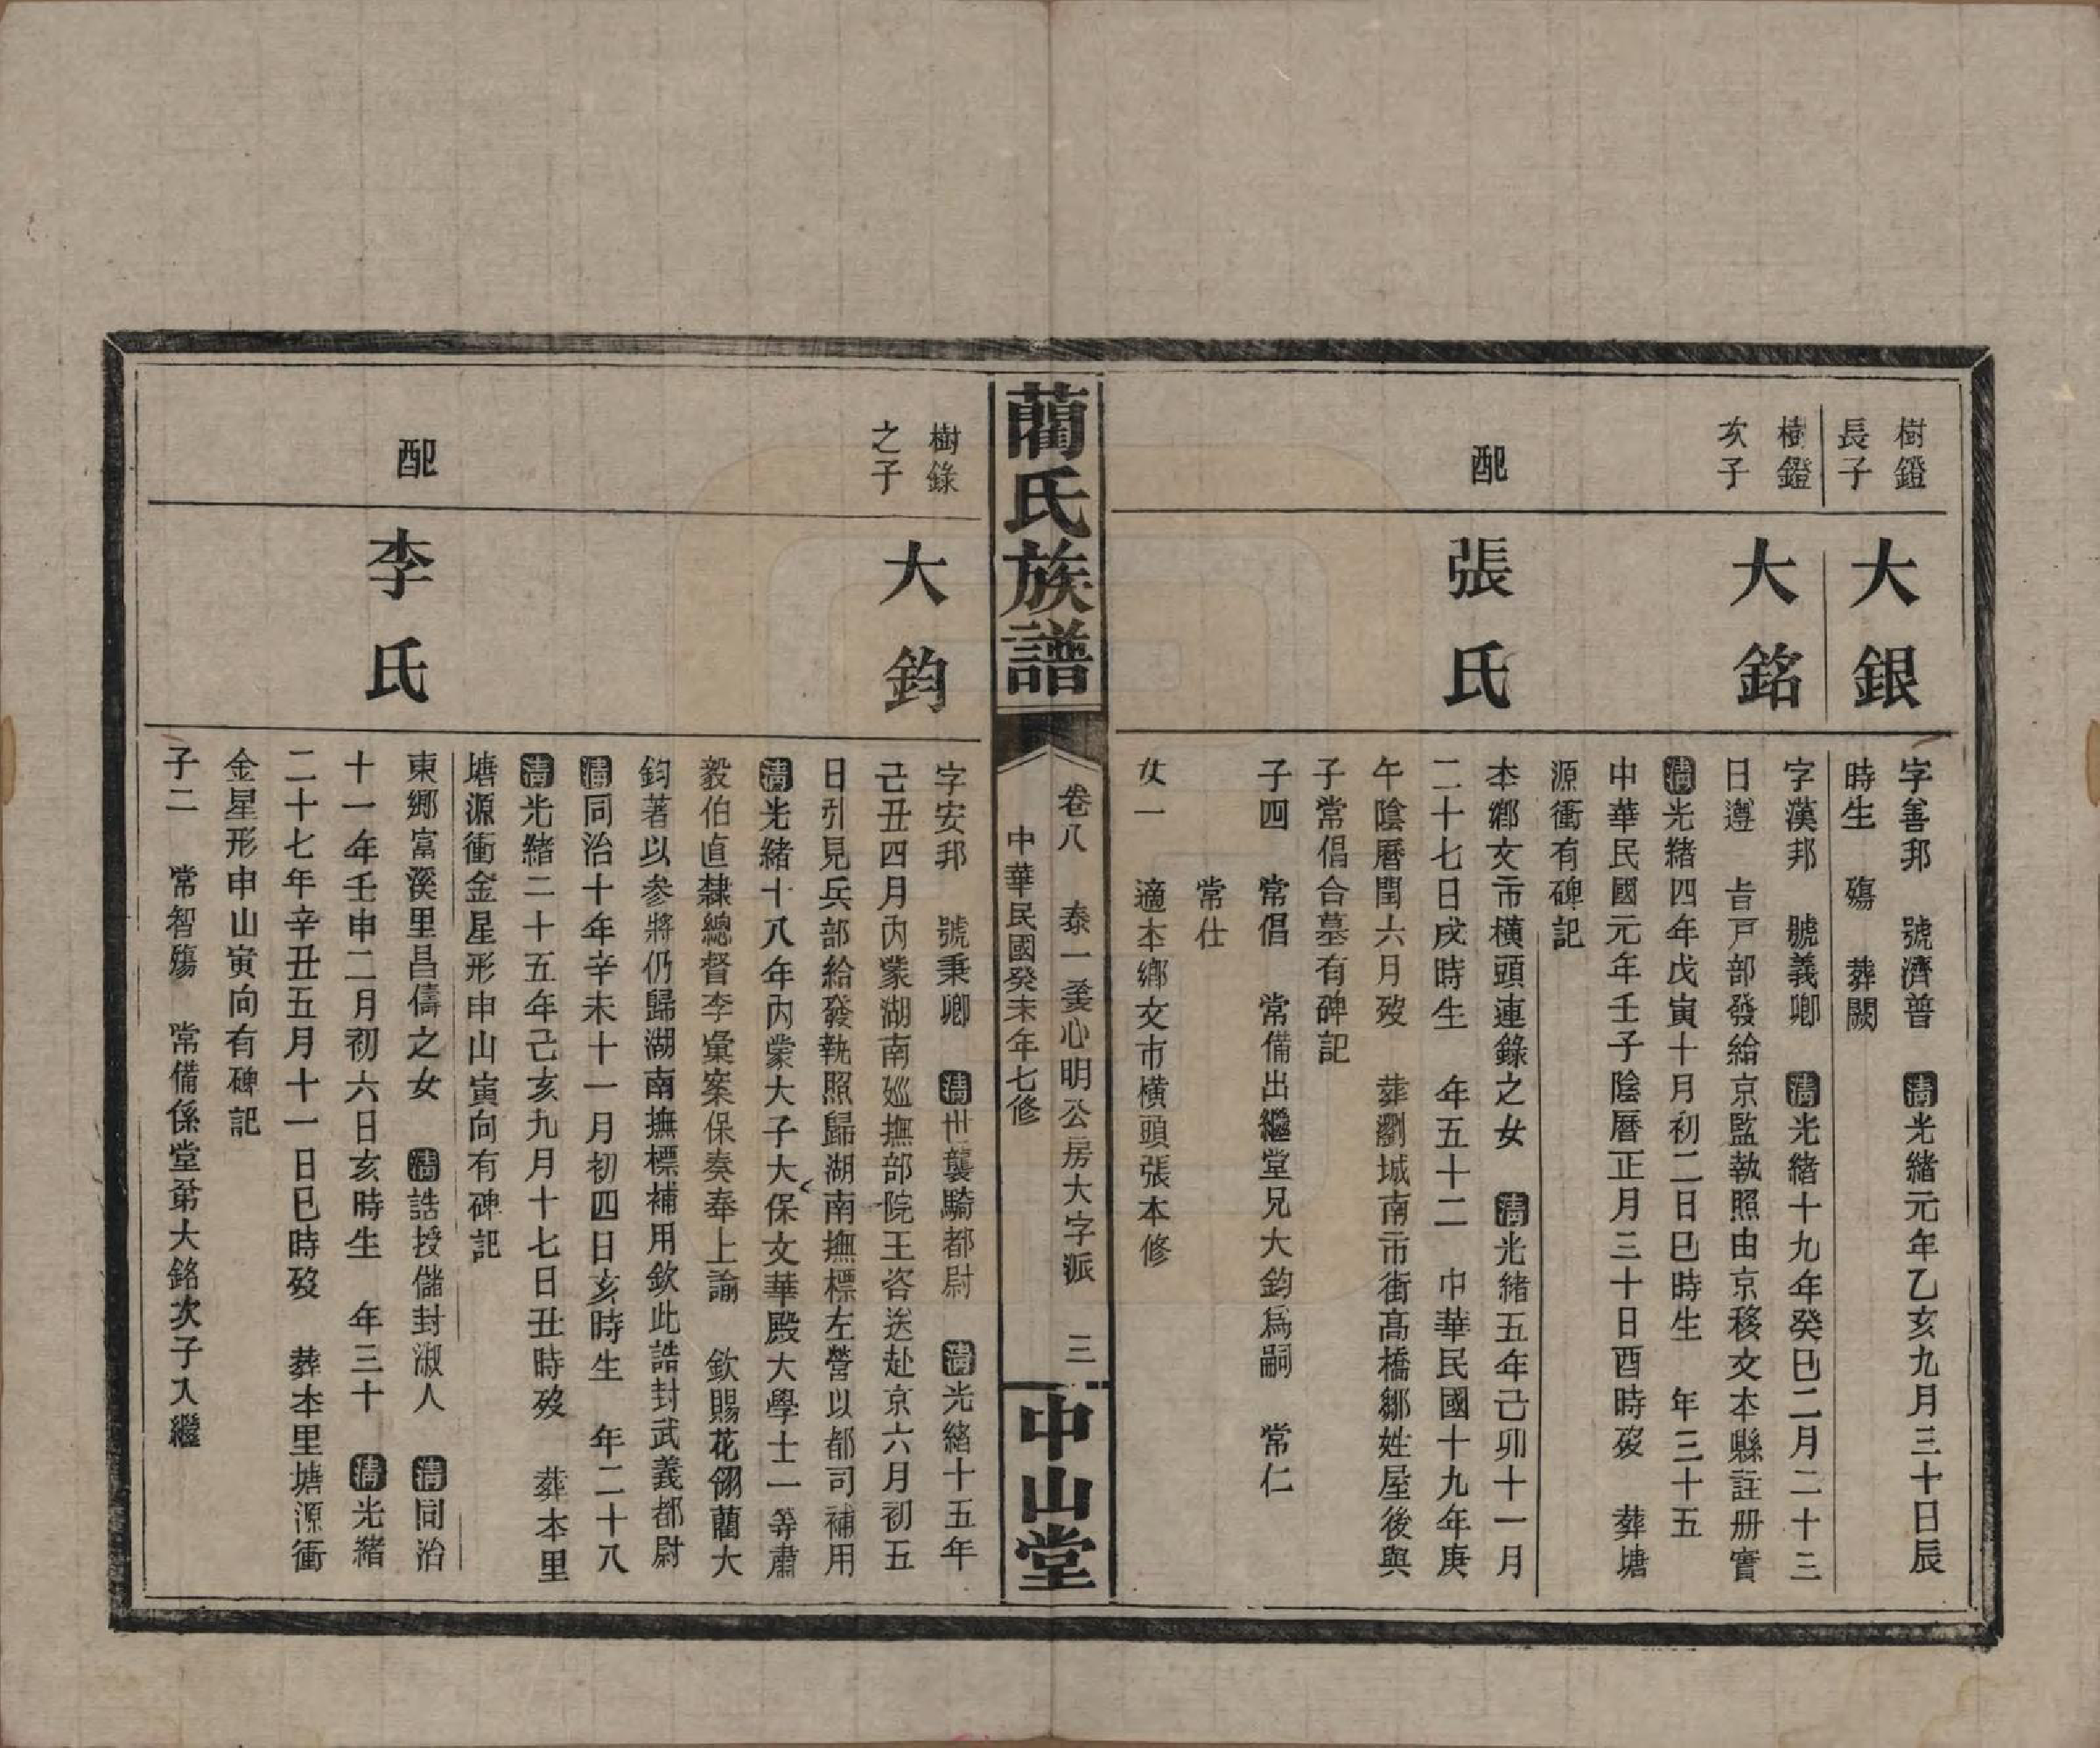 樹鐙
長子
大銀
字善邦　號濟普　清光緒元年乙亥九月三十日辰
時生　殤　葬闕
樹鐙
次子
大銘
字漢邦　號義卿　清光緒十九年癸巳二月二十三
日遵　旨戸部發給京監執照由京移文本縣註册實
清光緒四年戊寅十月初二日巳時生　年三十五
中華民國元年壬子陰曆正月三十日酉時歿　葬塘
源衝有碑記
配
張氏
本鄉文市橫頭連錄之女　清光緒五年己卯十一月
二十七日戌時生　年五十二　中華民國十九年庚
午陰曆閏六月歿　葬瀏城南市街高橋鄒姓屋後與
子常倡合墓有碑記
子四　常倡　常備出繼堂兄大鈞爲嗣　常仁
常仕
女一　適本鄉文市橫頭張本修
藺氏族譜
卷八　泰一叢心明公房大字派　三
中華民國癸未年七修
中山堂
樹錄
之子
大鈞
字安邦　號秉卿　清卋襲騎都尉　清光緒十五年
己丑四月內蒙湖南廵撫部院王咨送赴京六月初五
日引見兵部給發執照歸湖南撫標左營以都司補用
清光緒十八年內蒙大子大保文華殿大學士一等肅
毅伯直隸總督李彙案保奏奉上諭　欽賜花翎藺大
鈞著以參將仍歸湖南撫標補用欽此誥封武義都尉
清同治十年辛未十一月初四日亥時生　年二十八
清光緒二十五年己亥九月十七日丑時歿　葬本里
塘源衝金星形申山寅向有碑記
配
李氏
東鄉富溪里昌儔之女　清誥授儲封淑人　清同治
十一年壬申二月初六日亥時生　年三十　清光緒
二十七年辛丑五月十一日巳時歿　葬本里塘源衝
金星形申山寅向有碑記
子二　常智殤　常備係堂弟大銘次子入繼